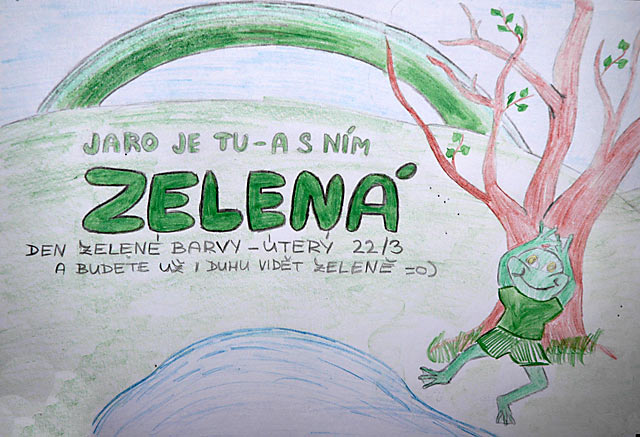 JARO JE TU - A S NÍM
ZELENÁ
DEN ZELENÉ BARVY - ÚTERÝ 22/3
A BUDETE UŽ I DUHU VIDĚT ZELENĚ =o)